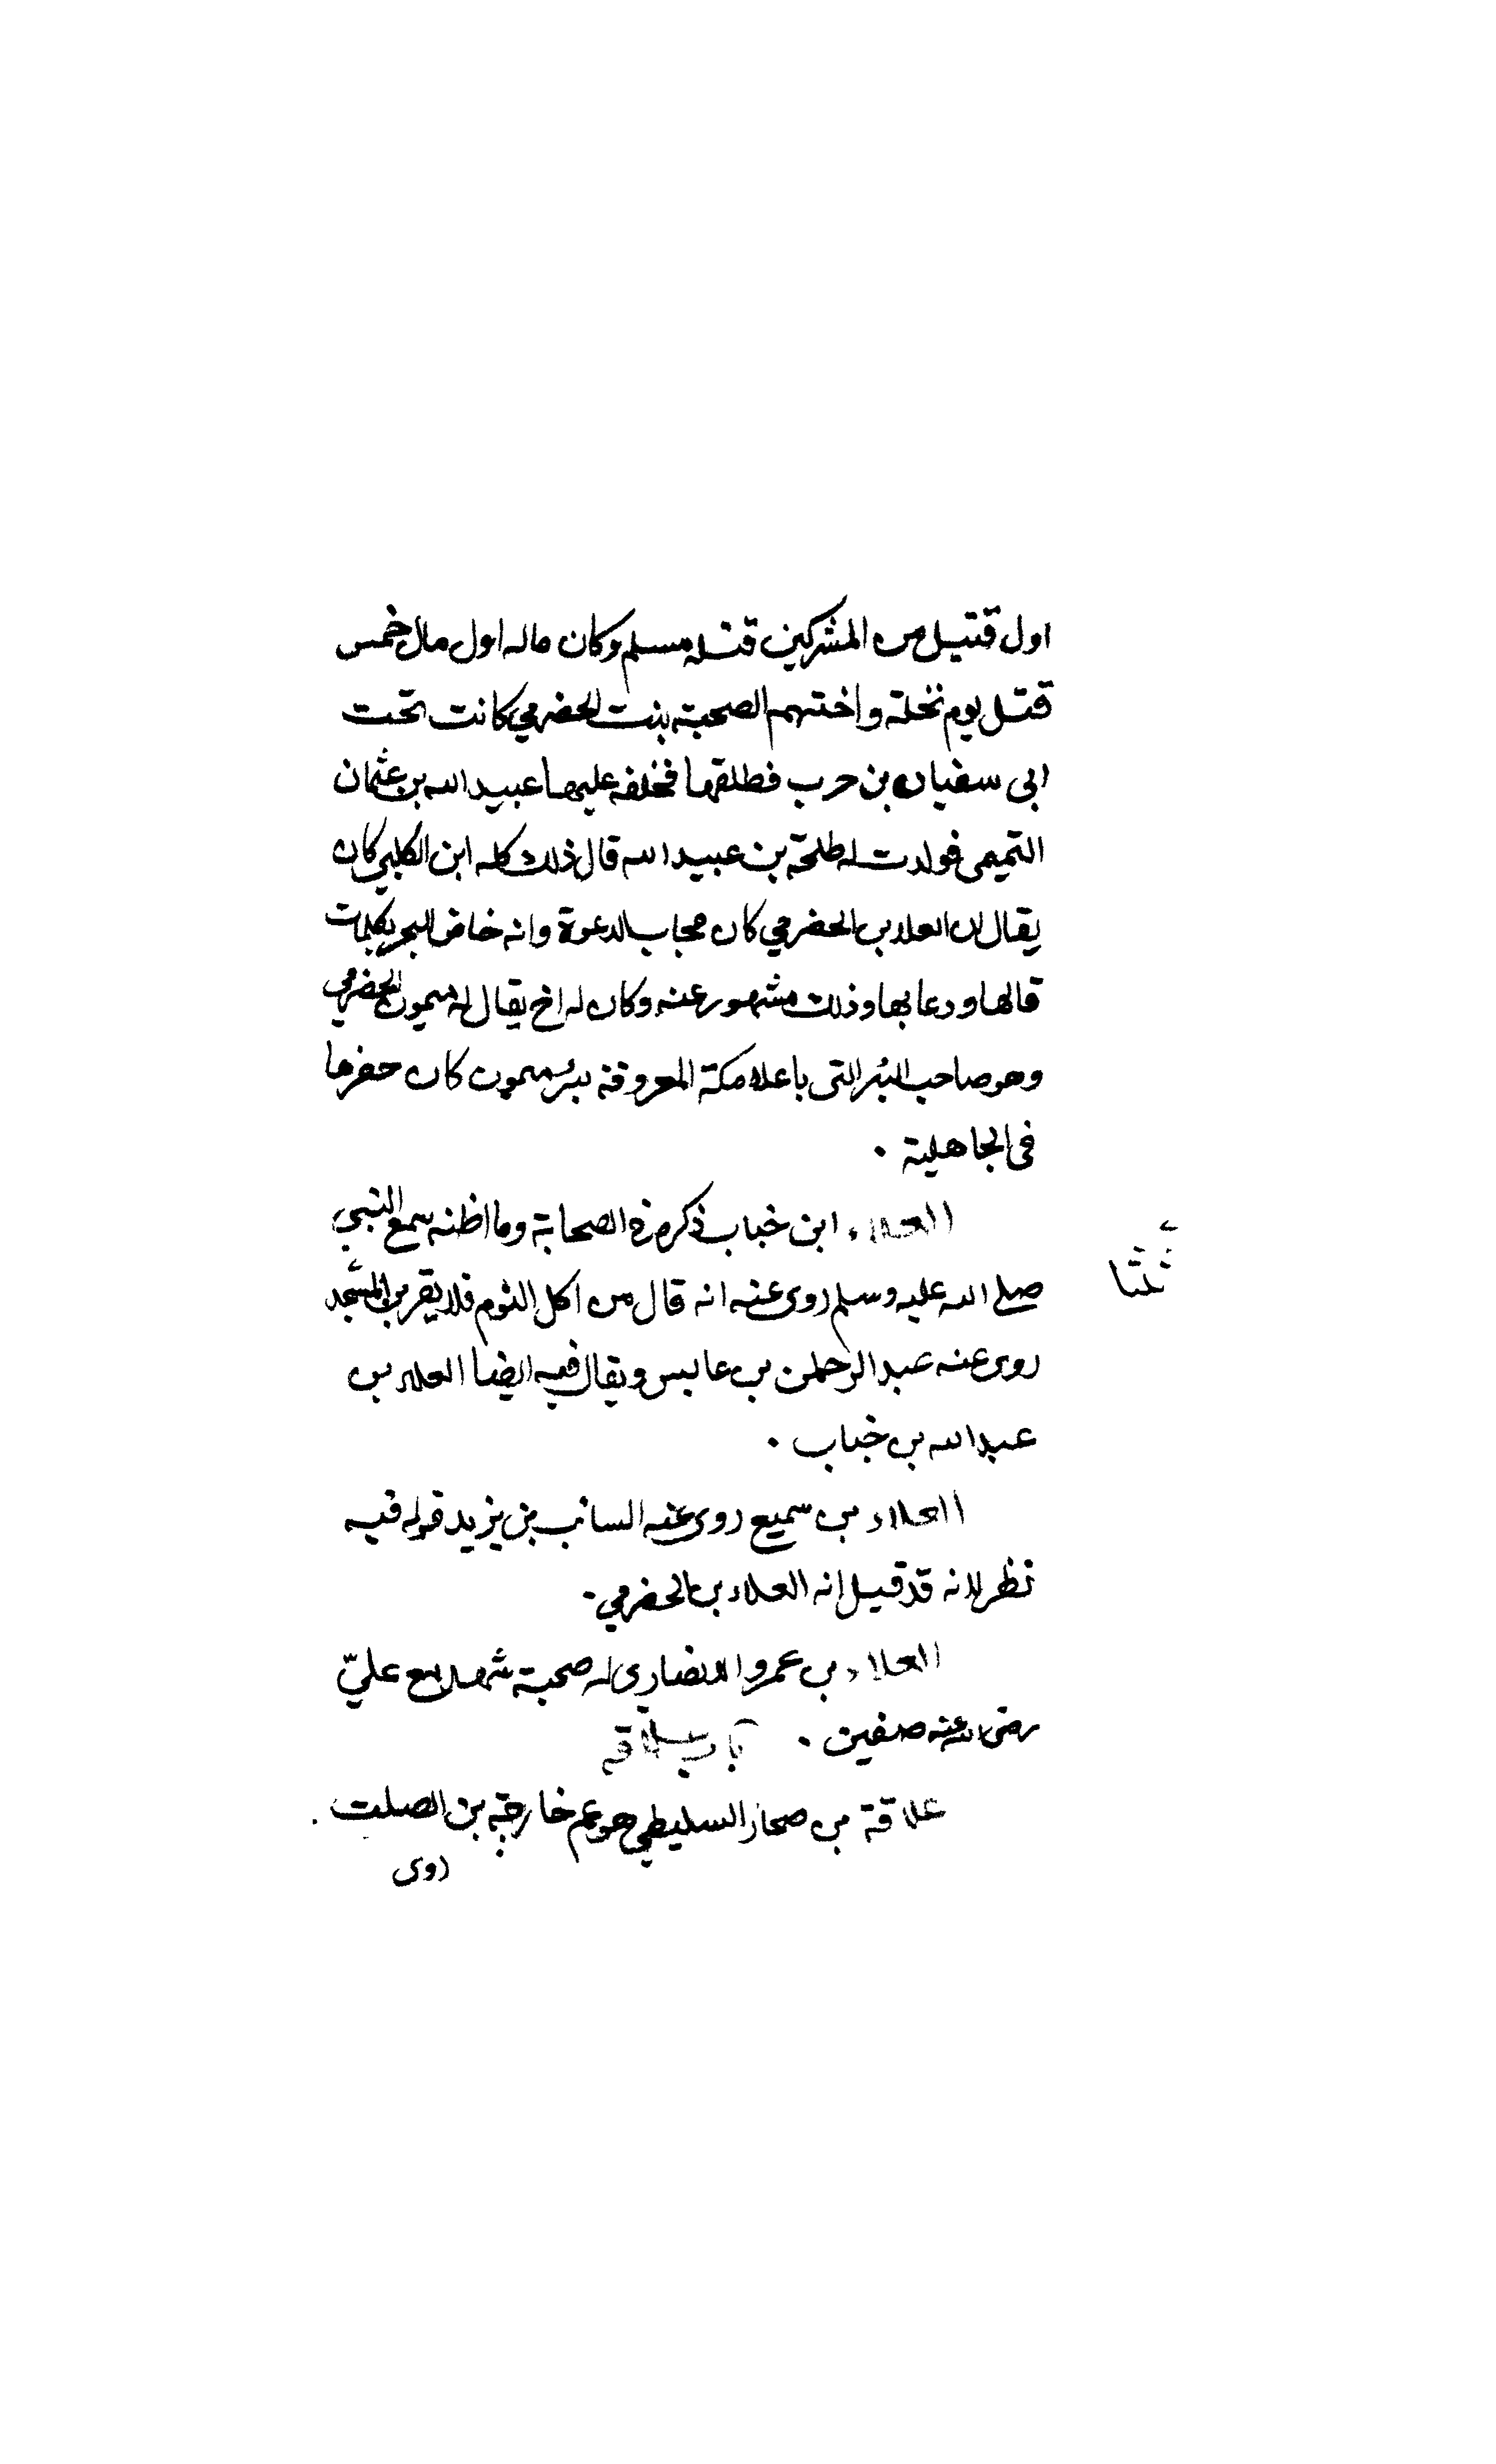 اول قتيل من المشركين قتله مسلم وكان ماله اول مال خمس
قتل يوم نخلة واختهم الصحبة بنت الحضرمي كانت تحت
ابى سفيان بن حرب فطلقها فخلفه عليها عبيد الله بن عثمان
التميمى فولدت له طلحة بن عبيد الله قال ذلك كله ابن الكلبي كان
يقال ان العلا بن الحضرمي كان مجاب الدعوة وانه خاض البحر بكلمات
قالها ودعا بها وذلك مشهور عنه وكان له اخ يقال له ميمون الحضرمي
وهو صاحب البئر التى باعلا مكة المعروفة ببئر ميمون كان حفرها
فى الجاهلية .
العلاء ابن خباب ذكره في الصحابة وما اظنه سمع النبي
صلى الله عليه وسلم روى عنه انه قال من اكل الثوم فلا يقربن المسجد
روى عنه عبد الرحمن بن عابس ويقال فيه ايضا العلاء بن
عبد الله بن خباب .
العلاء بن سميع روى عنه السائب بن يزيد قوله فيه
نظر لانه قد قيل انه العلاء بن الحضرمي .
العلاء بن عمرو الانصارى له صحبة شهد مع عليّ
رضى الله عنه صفين . باب علاقة
علاقة بن صحار السليطي هو عم خارجة بن الصلت .
روى